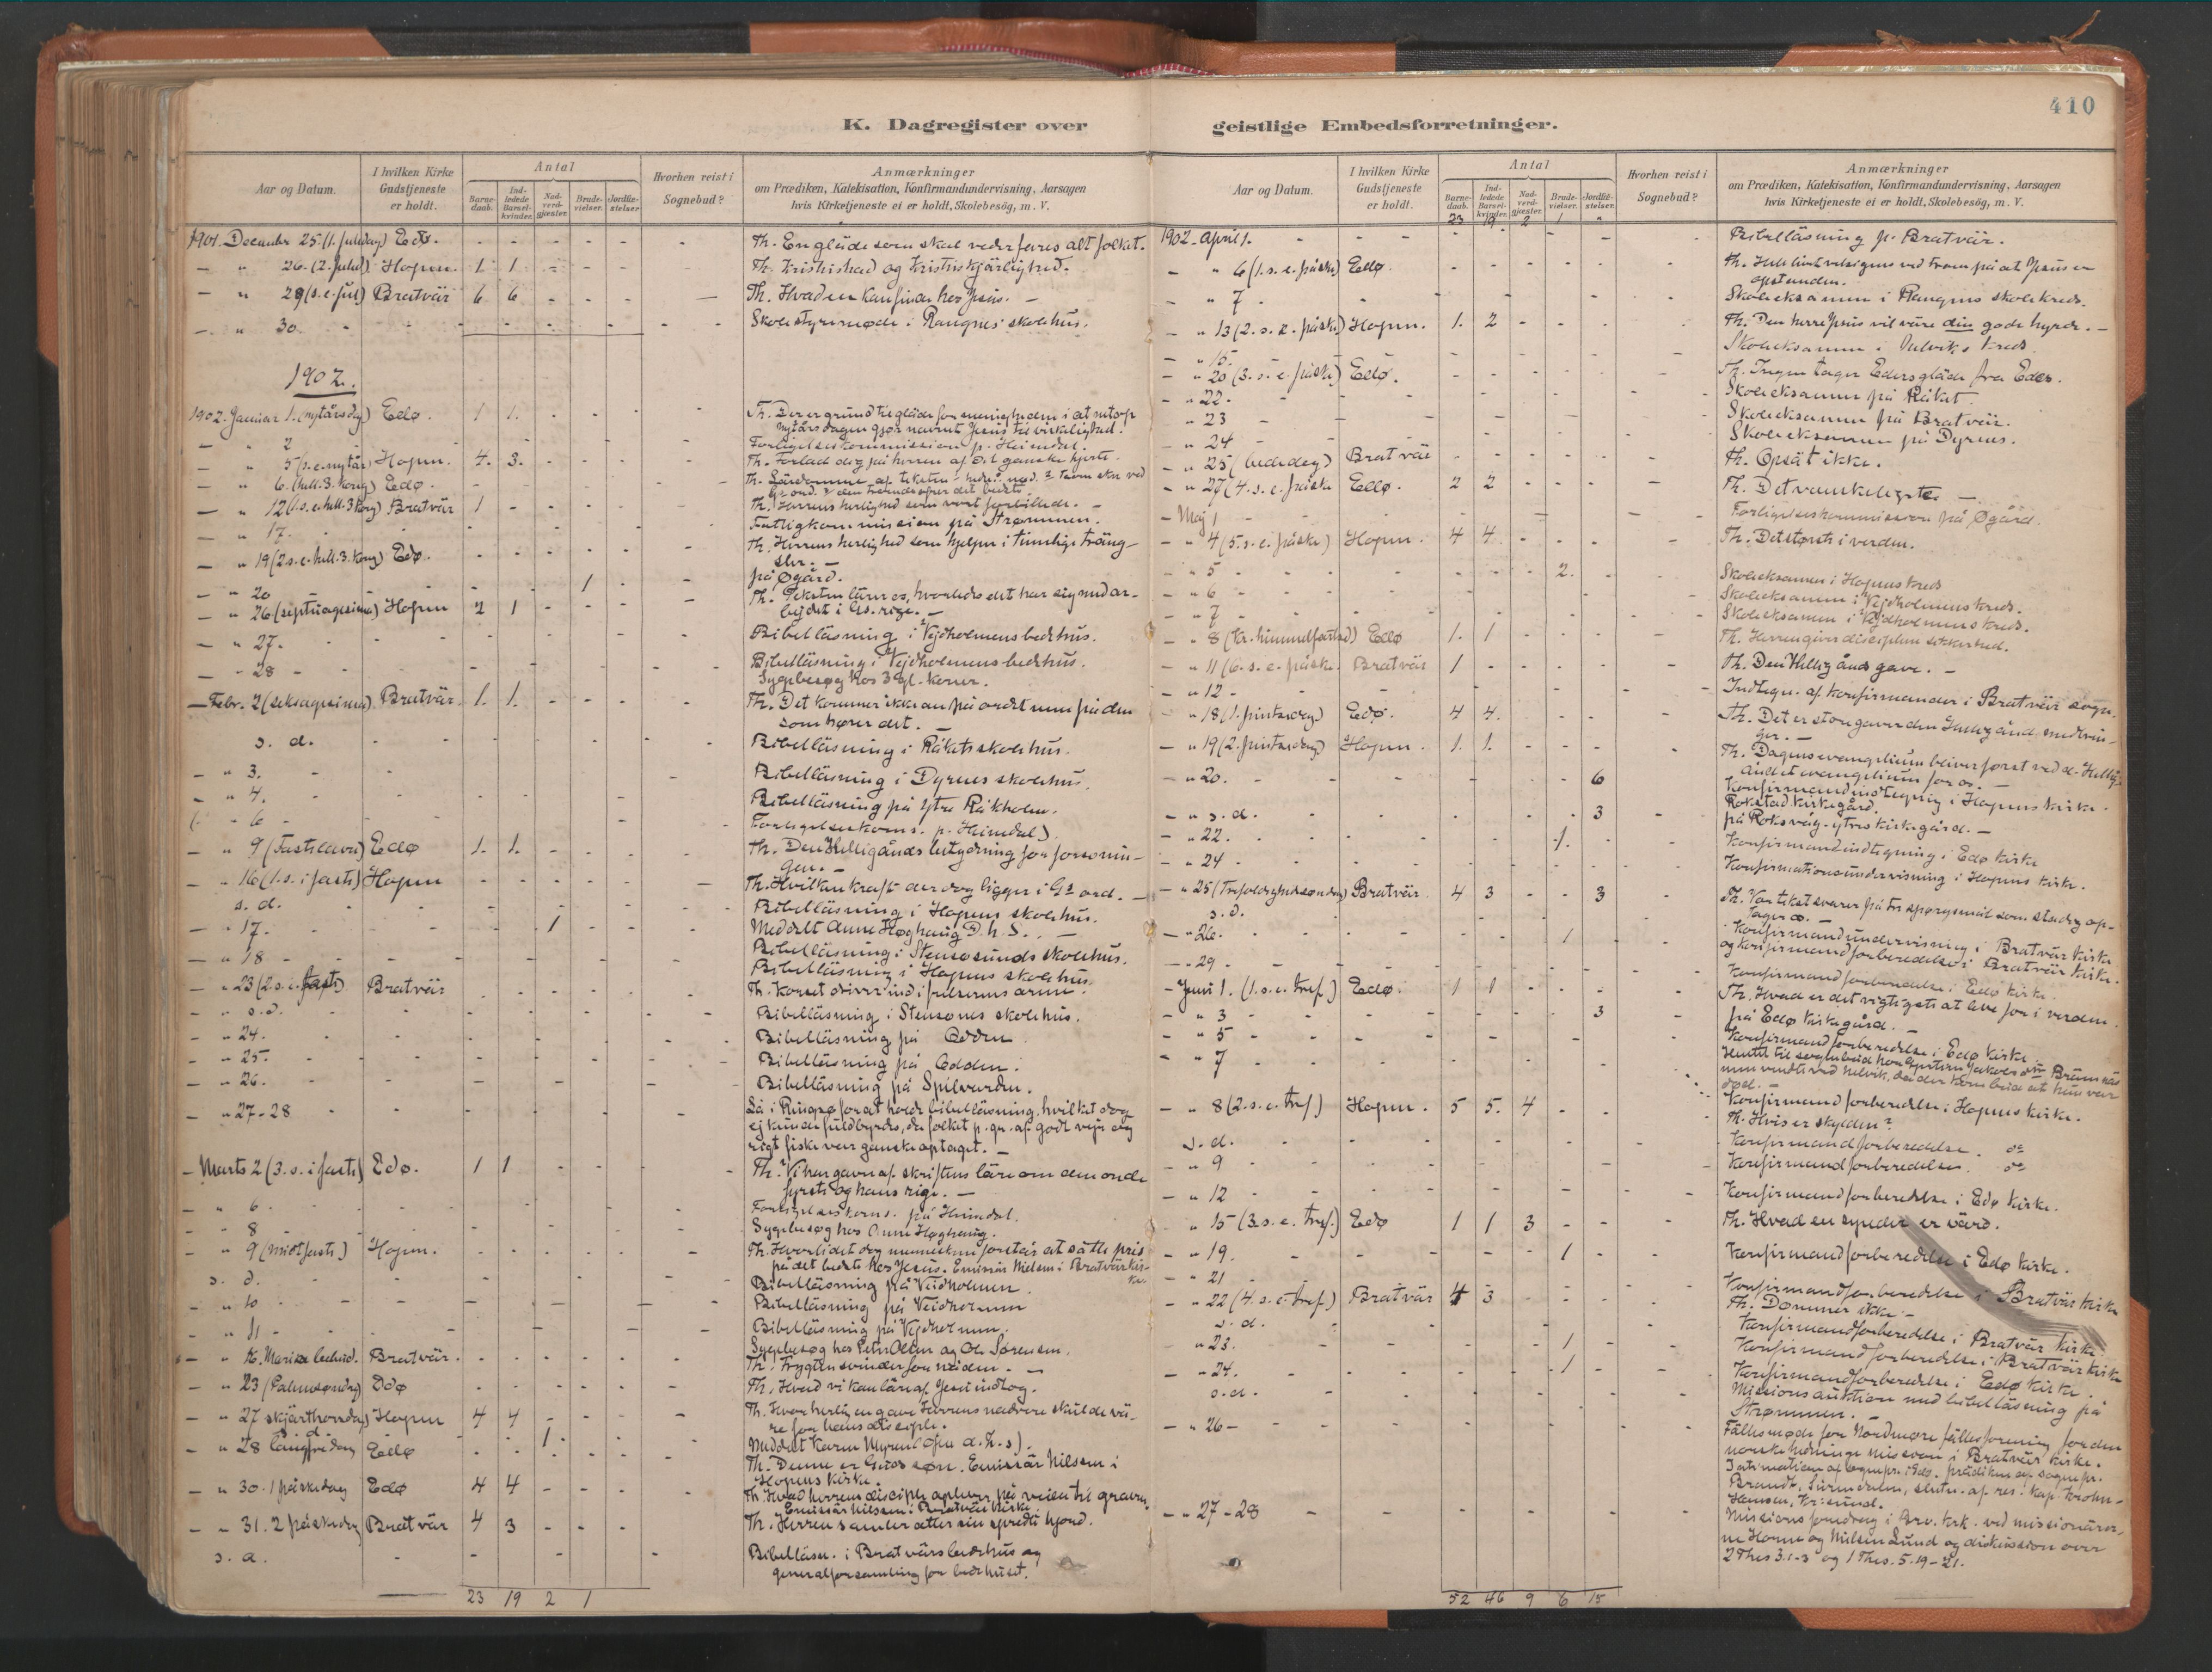 410
K. Dagregister over
geistlige Embedsforretninger.
Aar og Datum.
I hvilken Kirke Gudstjeneste er holdt.
Antal
Barnedaab.
Indledede Barselkvinder.
Nadverdgjester.
Brudevielser.
Jordfæstelser.
Hvorhen reist i Sognebud?
Anmærkninger
om Prædiken, Katekisation, Konfirmandundervisning, Aarsagen
hvis Kirketjeneste ei er holdt, Skolebesøg, m. V.
1901. December 25. (1. juledag) Edø. - - - - - Th. En gläde som skal vederfares alt folket.
— " 26. (2. juled) Hopen. 1. 1. - - - Th. Kristishad og Kristiskjärlighed.
— " 29 (s. e. jul) Bratvär 6 6 - - - Th. Hvad en kan finde hos Jesus. —
— " 30. - - Skolestyremøde i Rangnes skolehus.
1902.
1902. Januar 1. (nytårsdag) Edø. 1 1. - - - Th. Der er grund til gläde for menigheden i at netop
nytårsdagen gjør navnet Jesus til virkelighed.
— " 2 Forligelseskommission p. Heimdal.
— " 5 (s. e. nytår) Hopen. 4. 3. - - - Th. Forlad dig på herren af dit ganske hjerte.
— " 6. (hell. 3. kong) Edø. -
— " 12 (1. s. e. hell. 3 kong) Bratvär 1 - Th. Herrens herlighed som vort forbillede. —
— " 17. Fattigkommission på Strømmen.
— " 19 (2 s. e. hell. 3. kong) Edø. - Th. Herrens herlighed som hjelper i timelige träng-
sler. —
— " 20 1 på Øgård.
— " 26 (septuagesima) Hopen 2 1 - Th. Teksten lärer os, hvorledes det har sig med ar-
bejdet i Gs. rige. —
— " 27. Bibelläsning i Vejdholmens bedehus.
— " 28 - Bibelläsning i Vejdholmens bedehus.
Sygebesøg hos 3 gl. koner.
— Febr. 2 (seksagesima) Bratvär. 1. 1. - Th. Det kommer ikke an på ordet men på den
som hører det. —
s. d. - Bibelläsning i Råkets skolehus.
— " 3. - Bibelläsning i Dyrnes skolehus.
— " 4. Bibelläsning på Ytre Råkholm.
( " 6 - Forligelseskoms. p. Heimdal).
— " 9 (Fastelavn) Edø 1. 1. - Th. Den Helligånds betydning for forsonin-
gen. —
— " 16 (1. s. i faste) Hopen - Th. Hvilken kraft der dog ligger i Gs ord. —
s. d. Bibelläsning i Hopens skolehus.
— " 17. 1 Meddelt Anne Høghaug D. h. S. —
— " 18 - Bibelläsning i Stensøsunds skolehus.
Bibelläsning i Hopens skolehus.
— " 23 (2. s. i. faste) Bratvär Th. Korset driver ind i frelserens arme.
— " s. d. Bibelläsning i Stensønes skolehus.
— " 24. Bibelläsning på Odden.
— " 25. Bibelläsning på Odden.
— " 26. Bibelläsning på Spilvarden.
— " 27-28 Lå i Ringsø for at holde bibelläsning, hvilket dog
ej kunde fuldbyrdes, da folket p. gr. af godt vejr og
rigt fiske var ganske optaget. —
— Marts 2 (3. s. i faste) Edø. 1 1 - Th. Vi har gavn af skriftens läre om den onde
fyrste og hans rige. —
— " 6. Forligelseskoms. på Heimdal.
— " 8 Sygebesøg hos Anne Høghaug.
— " 9 (midtfaste) Hopen. Th. Hvor lidet dog mennesken forstår at sätte pris
på det bedste hos Jesus. Emissär Nielsen i Bratvärkir-
ke.
s. d. Bibelläsning på Veidholmen.
— " 10 - Bibelläsning på Veidholmen
— " 11 - Bibelläsning på Vejdholmen.
Sygebesøg hos Peter Olsen og Ole Sørensen.
— " 16. Mariæ bebud. Bratvär. Th. Frygten svinder for nåden. —
— " 23 (Palmesøndag) Edø Th. Hvad vi kan läre af Jesu indtog.
— " 27 skjärthorsdag Hopen 4 4 - Th. Hvor herlig en gave Herrens nadvere skulde vä-
re for hans disciple.
s. d. 1. Meddelt Karen Myren (d. h. s).
— " 28 langfredag Edø Th. Denne er Guds søn. Emissär Nilsen i
Hopens kirke.
— " 30. 1 påskedag Edø 4 4 Th. Hvad herrens disciple oplever på veien til graven.
Emissär Nilsen i Bratvär kirke.
— " 31. 2 påskedag Bratvär 4 3 - - Th. Herren samler atter sin spredte hjord.
s. d. Bibelläsn. i Bratvärs bedehus og
generalforsamling for bedehuset.
23 19 2 1
23 19 2 1 "
1902. April 1. - Bibelläsning p. Bratvär.
— " 6 (1. s. e. påske) Edø. Th. Helt livet velsignes ved troen på at Jesus er
opstanden.
— " 7 - Skoleeksamen i Rangnes skolekreds.
— " 13 (2. s. e. påske) Hopen. 1. 2 - Th. Den herre Jesus vil väre din gode hyrde. —
— " 15. Skoleeksamen i kreds.
— " 20 (3. s. e. påske) Edø. Th. Ingen tager Eders gläde fra Eder.
— " 22. Skoleeksamen på Råket.
— " 23 Skoleeksamen på Bratvär.
— " 24 Skoleeksamen på Dyrnes.
— " 25 (bededag) Bratvär Th. Opsät ikke.
— " 27 (4. s. e. påske Edø. 2 2 Th. Det vanskeligste —
— Maj 1 Forligelseskommission på Øgård.
— " 4 (5. s. e. påske) Hopen. 4 4 Th. Det største i verden.
— " 5 2.
— " 6 Skoleeksamen i Hopens kreds
Skoleeksamen i Vejdholmens kreds.
— " 7 Skoleeksamen i Vejdholmens kreds.
— " 8 (Kr. himmelfartsd) Edø 1. 1 Th. Herren giver disciplene sikkerhed.
— " 11 (6. s. e. påske. Bratvär 1 Th. Den Hellig Ånds gave. —
— " 12 - Indtegn. af konfirmander i Bratvär sogn.
— " 18 (1. pintsedag) Edø. 4 4. Th. Det er store gaver den Hellig ånd medbrin-
ger. —
— " 19 (2. pintsedag) Hopen. 1. 1. Th. Dagens evangelium bliver først ved d. Hellig-
ånd et evangelium for os. —
— " 20. 6 Konfirmandindtegning i Hopens kirke.
Rokstad kirkegård.
— " s. d. 3 på Roksvåg-ytres kirkegård. —
— " 22. 1. Konfirmandindtegning i Edø kirke
— " 24 Konfirmationsundervisning i Hopens kirke.
— " 25 (Trefoldighedssøndag) Bratvär. 4 3 - - 3 Th. Vor tekst svarer på tre spørgsmål som stadig op-
tager os. —
s. d. Konfirmandundervisning i Bratvär kirke
— " 26. 1 og konfirmandforberedelse i Bratvär kirke.
— " 29 Konfirmandforberedelse i Edø kirke.
— Juni 1. (1. s. e. tref.) Edø. 1 1 Th. Hvad er det vigtigste at leve for i verden.
— " 3 3 på Edø kirkegård. —
— " 5 Konfirmandforberedelse i Edø kirke.
— " 7 Hentet til sognebud hos Jakobsdtr. Brämsnäs
men vendte ved da der kom bud at hun var
død. —
Konfirmandforberedelse i Hopens kirke.
— " 8 (2. s. e. tref) Hopen. 5 5. 4 Th. Hvis er skylden?
s. d. Konfirmandforberedelse. do
— " 9 Konfirmandforberedelse. do
— " 12 Konfirmandforberedelse i Edø kirke.
— " 15 (3. s. e. tref.) Edø 1 1 3 Th. Hvad en synder er värd.
— " 19. 1 Konfirmandforberedelse i Edø kirke.
— " 21 Konfirmandforberedelse i Bratvär kirke
— " 22 (4. s. e. tref.) Bratvär 4 3 Th. Dømmer ikke. —
s. d. Konfirmandforberedelse i Bratvär kirke
— " 23. 1 Konfirmandforberedelse i Bratvär kirke
— " 24. 1 Konfirmandforberedelse i Edø kirke.
s. d. Missionsauktion med bibelläsning på
Strømmen. —
— " 26 — Fällesmøde for Nordmøre fällesforening for den
norske hedninge mission i Bratvär kirke.
Intimation af sognepr. i Edø, prädiken af sognepr.
Brandt, Surendalen, slutn. af res. kap. Krohn-
Hansen, Kr.sund.
— " 27-28 Missionsforedrag i Brv. kirk. ved missionärer-
ne Horne og Nilsen Lund og diskussion over
2 Thes 3. 1-3 og 1 Thes. 5. 19-21.
52 46 9 6 15